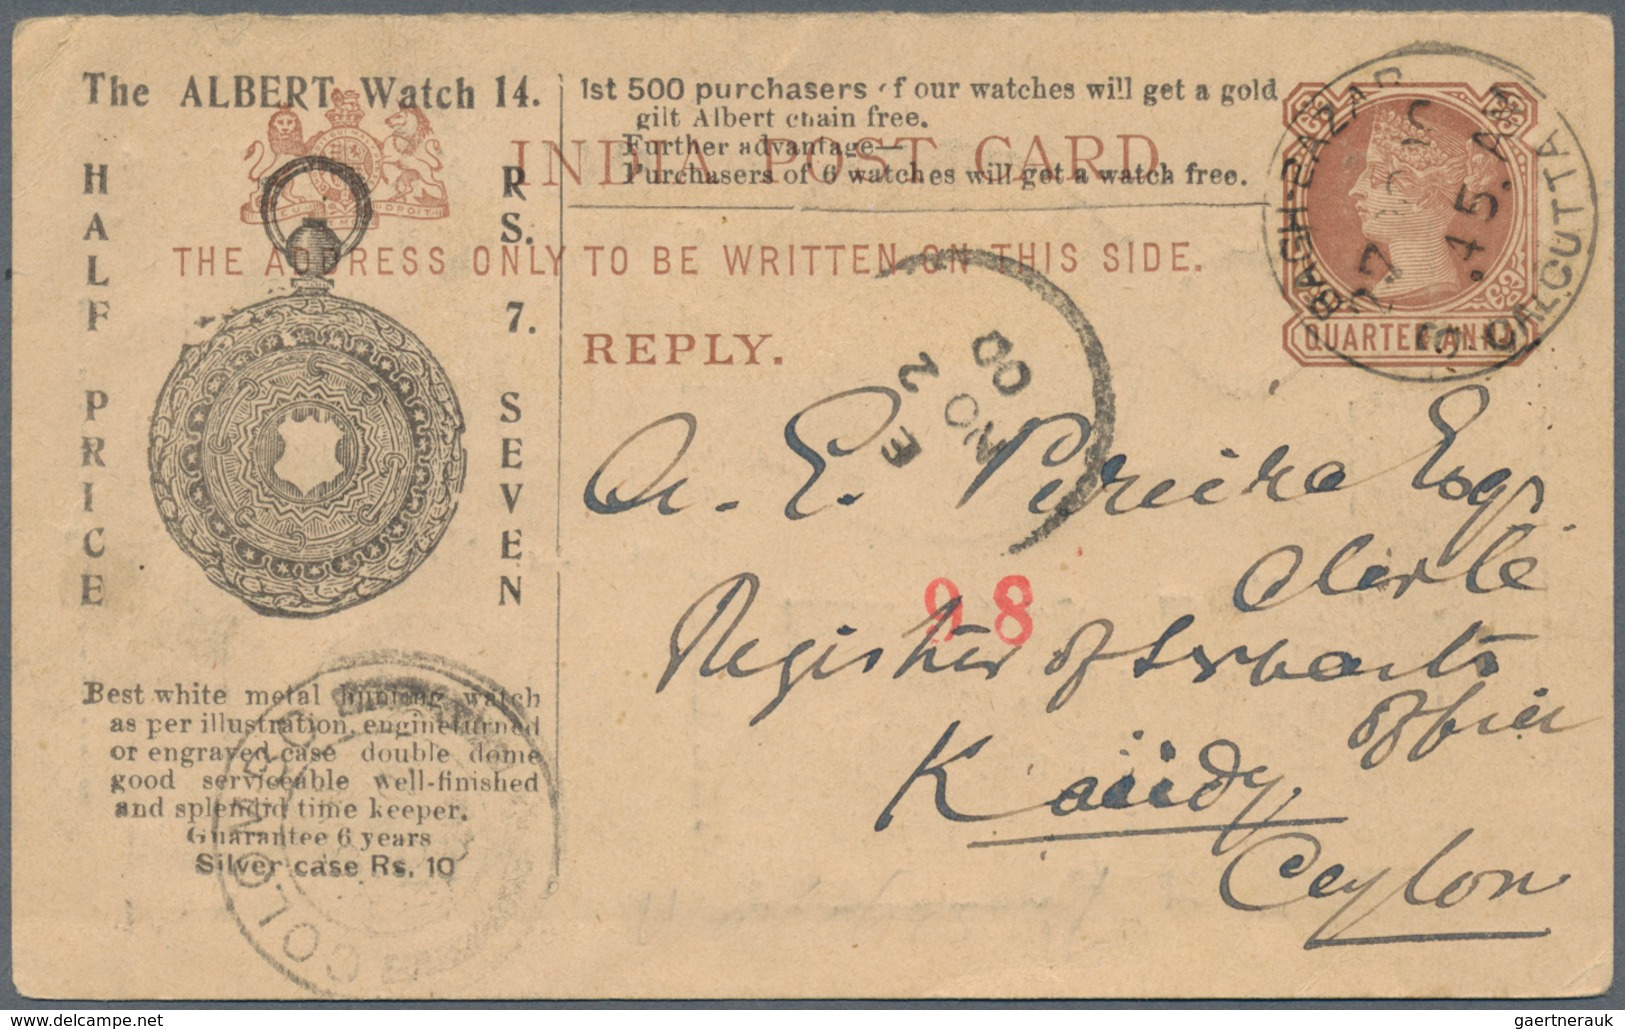 The ALBERT Watch 14.
HALF PRICE
RS. 7. SEVEN
Best white metal hunting watch
as per illustration, engine turned
or engraved case double dome
good serviceable well-finished
and splendid time keeper.
Guarantee 6 years
Silver case Rs. 10
1st 500 purchasers of our watches will get a gold
gilt Albert chain free.
Further advantage—
Purchasers of 6 watches will get a watch free.
INDIA POST CARD
THE ADDRESS ONLY TO BE WRITTEN ON THIS SIDE.
REPLY.
QUARTER ANNA
BAGH-BAZAR
CALCUTTA
.45. AM
E
2
NO
00
A. E. Pereira Esqr
Clerk
98
Register of Servants
Office
Kandy
Ceylon
COLOMBO
gaertnerauk